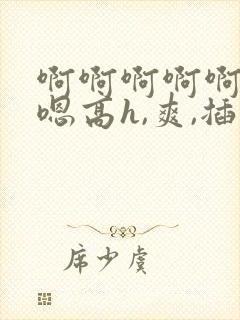 啊啊啊啊啊
嗯高h,爽,插
席少虞